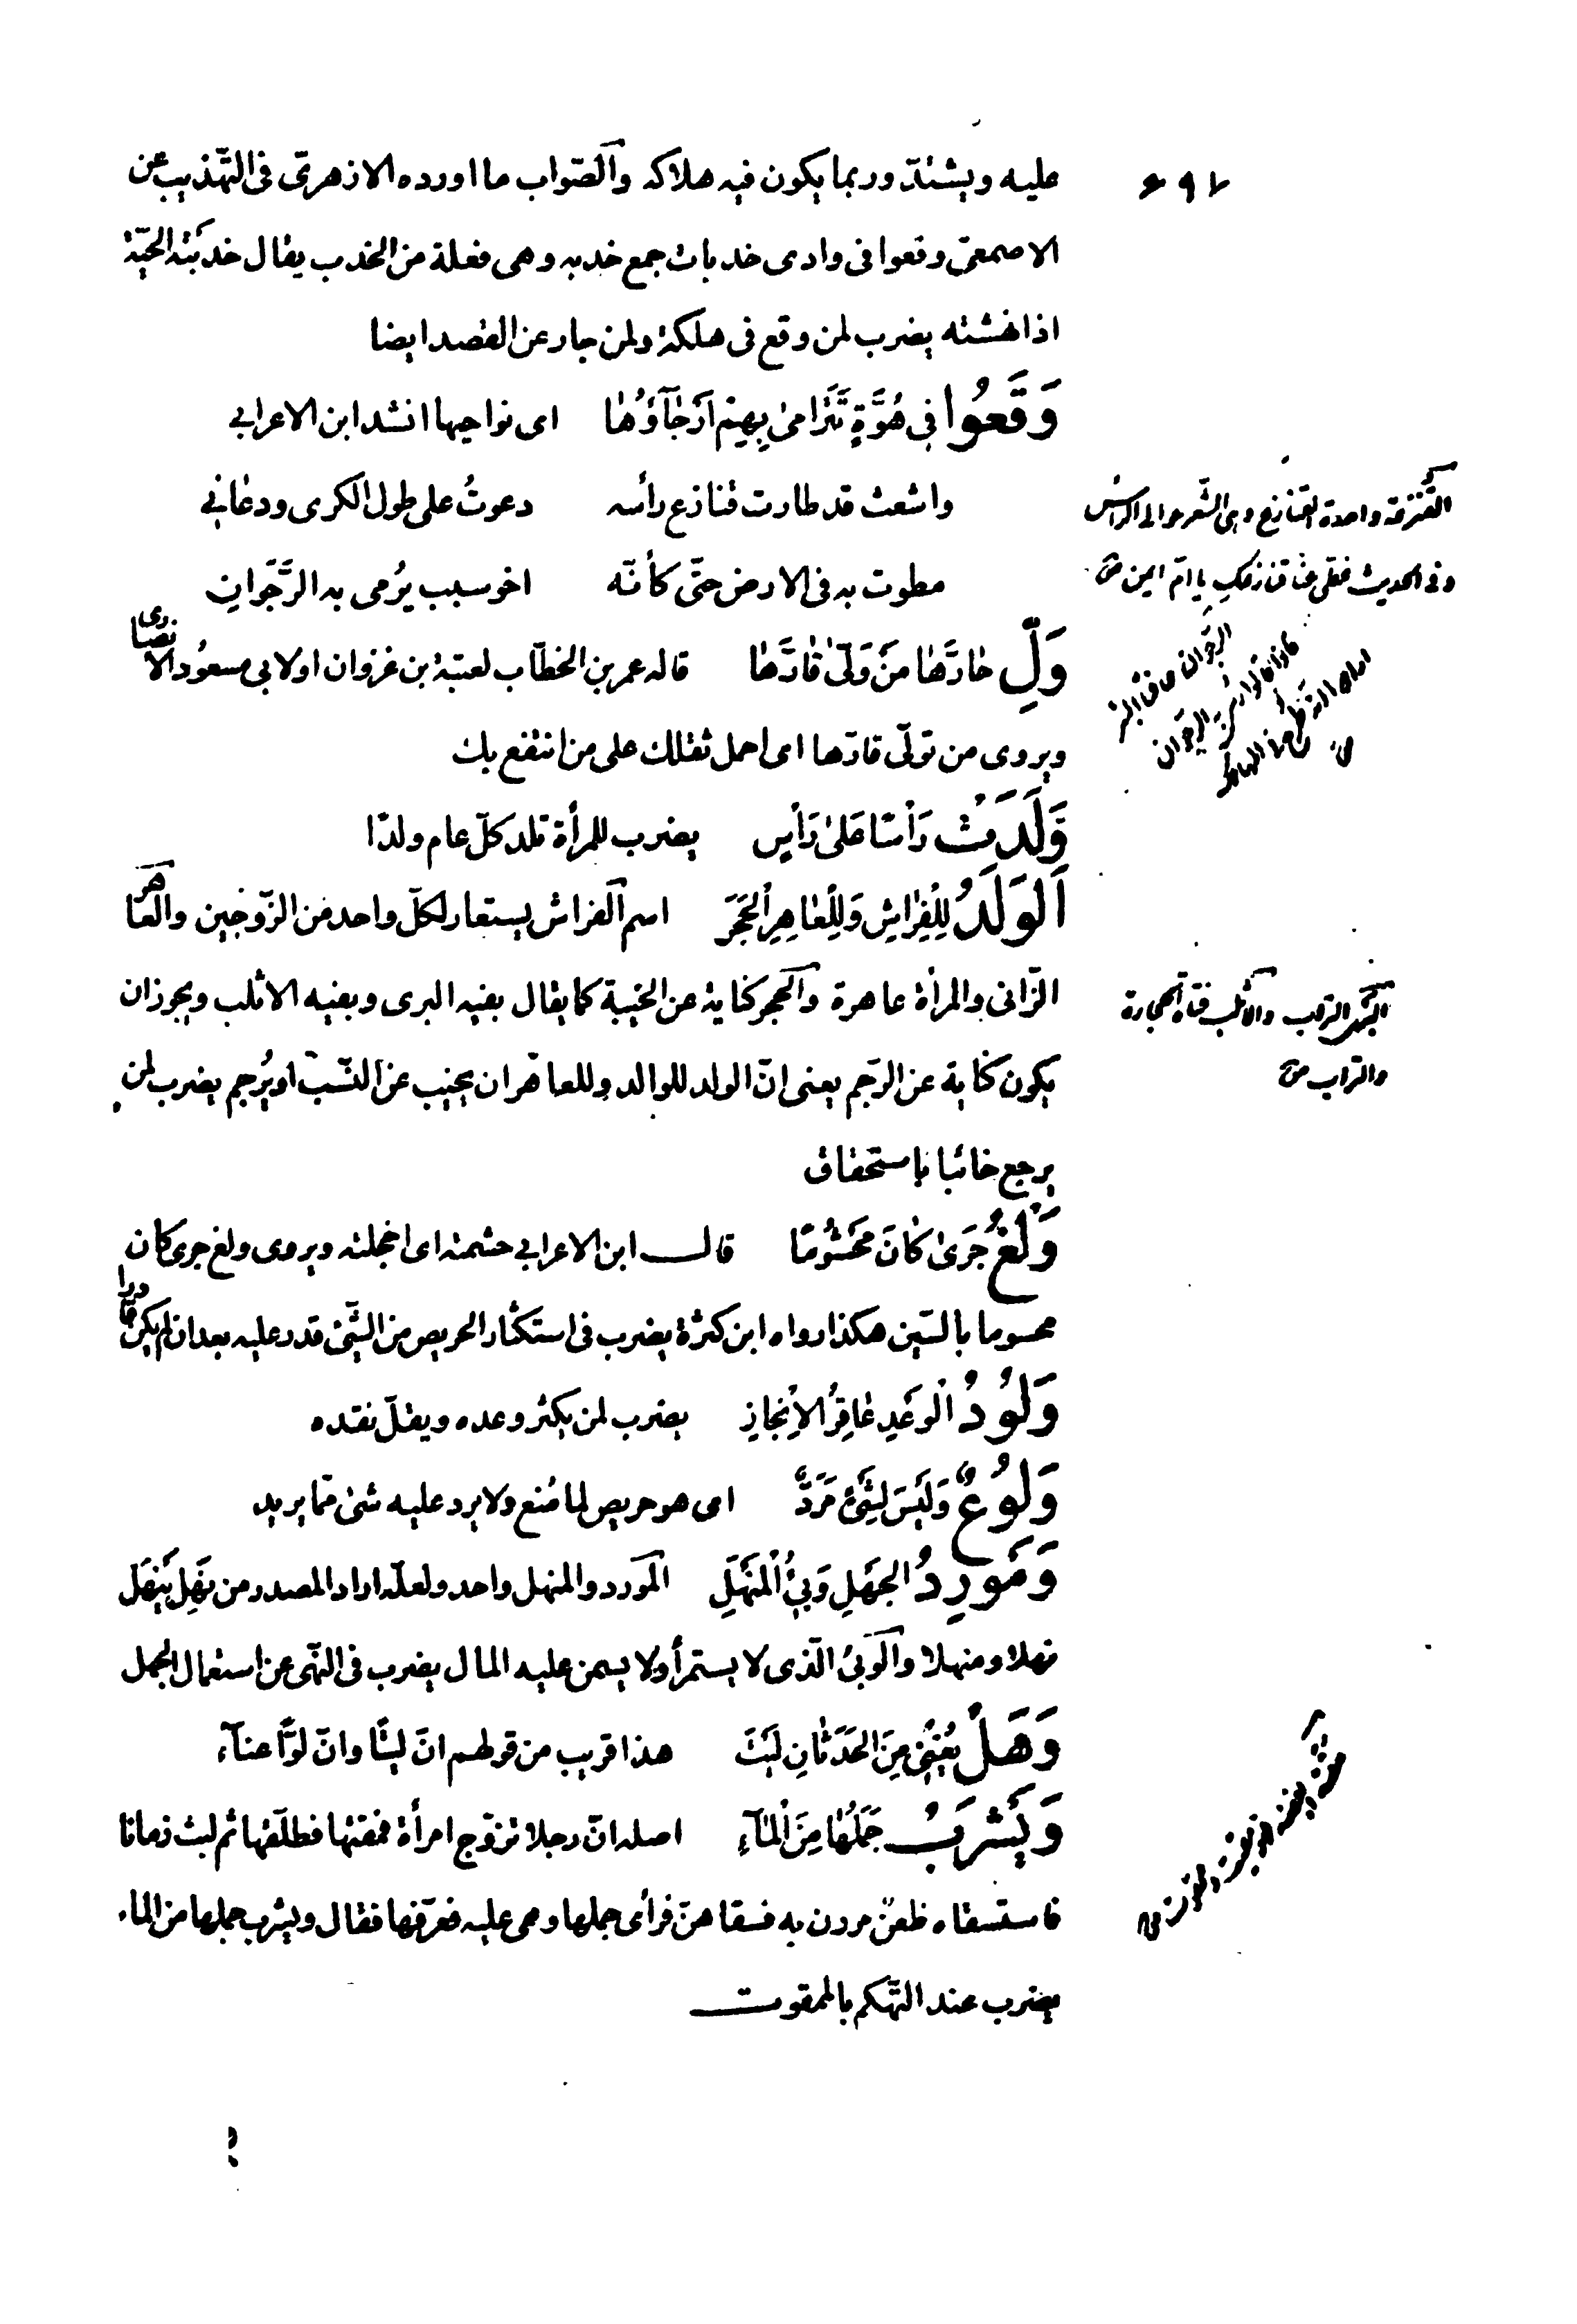 ٦٩٧
عليه ويشتدّ وربما يكون فيه هلاكه والصّواب ما اورده الازهرىّ فى التّهذيب عن
الاصمعىّ وقعوا فى وادى خدبات جمع خدبه وهى فعلة من الخدب يقال خدبته الحيّة
اذا نهشته يضرب لمن وقع فى هلكة ولمن جار عن القصد ايضا
وَقَعُوا فِى هُوَّةٍ تَتَرَامىٰ بِهِمْ اَرْجَآؤُهَا اى نواحيها انشد ابن الاعرابي
واشعث قد طارت قنازع رأسه دعوتُ على طول الكرى ودعانِي
مطوت به فى الارض حتّى كأنّه اخو سبب يُرمى به الرَّجَوانِ
وَلِّ حَارَّهَا مَنْ وَلّىٰ قَارَّهَا قاله عمر بن الخطّاب لعتبة بن غزوان او لابى مسعُود الانصارى
ويروى من تولّى قارّها اى احمل ثقلك على من انتفع بك
وَلَدَتْ رَأسًا عَلىٰ رَأسٍ يضرب للمرأة تلد كلّ عام ولدًا
اَلوَلَدُ لِلْفِرَاشِ وَلِلْعَاهِرِ الْحَجَرَ اسم الفراش يستعار لكلّ واحد من الزّوجين والعَاهر
الزّانى والمرأة عاهرة والحجر كناية عن الخيبة كما يقال بفيه البرى وبفيه الاثلب ويجوز ان
يكون كناية عن الرّجم يعنى انّ الولد للوالد وللعاهر ان يخيب عن النّسب او يُرجم يضرب لمن
يرجع خائبا باستحقاق
وَلْغُ جَرَىٰ كَانَ مَحْشُومًا قال ابن الاعرابي حشمته اى اخجلته ويروى ولغ جرى كان
محسوما بالسّين هكذا رواه ابن كثرة يضرب فى استكثار الحريص من الشّئ قدر عليه بعد ان لم يكن قادرا
وَلُودُ الْوَعْدِ عَاقِرُ الاِنْجَازِ يضرب لمن يكثر وعده ويقلّ نقده
وَلُوعٌ وَلَيْسَ لِشَئٍ مَرَدٌّ اى هو حريص لما مُنع ولا يرد عليه شئ ممّا يريد
وَمَوْرِدُ الجَهْلِ وَبِئُ الْمَنْهَلِ المورد والمنهل واحد ولعلّه اراد المصدر من نَهِل يَنهَل
نهلا ومنهلا والوبئ الّذى لا يستمرأ ولا يسمن عليه المال يضرب فى النّهى عن استعمال الجهل
وَهَلْ يُغْنِى مِنَ الحَدَثَانِ لَيْتَ هذا قريب من قولهم انّ ليتًا وانّ لوًّا عنآء
وَيَشْرَبُ جَمَلُهَا مِنَ الْمَآءِ اصله انّ رجلا تزوّج امرأة فمقتها فطلّقها ثم لبث زمانا
فاستسقاه ظعنٌ مررن به فسقاهنّ فرأى جملها وهى عليه فعرفها فقال ويشرب جملها من الماء
يضرب عند التّهكم بالممقوت
القنزعة واحدة القنازع وهى الشّعر حوالى الرأس
وفى الحديث غطّى عنّا قنازعكِ يا امّ ايمن
الرجوان حافتا البئر
التراب والاثلب فتات الحجارة
والتراب